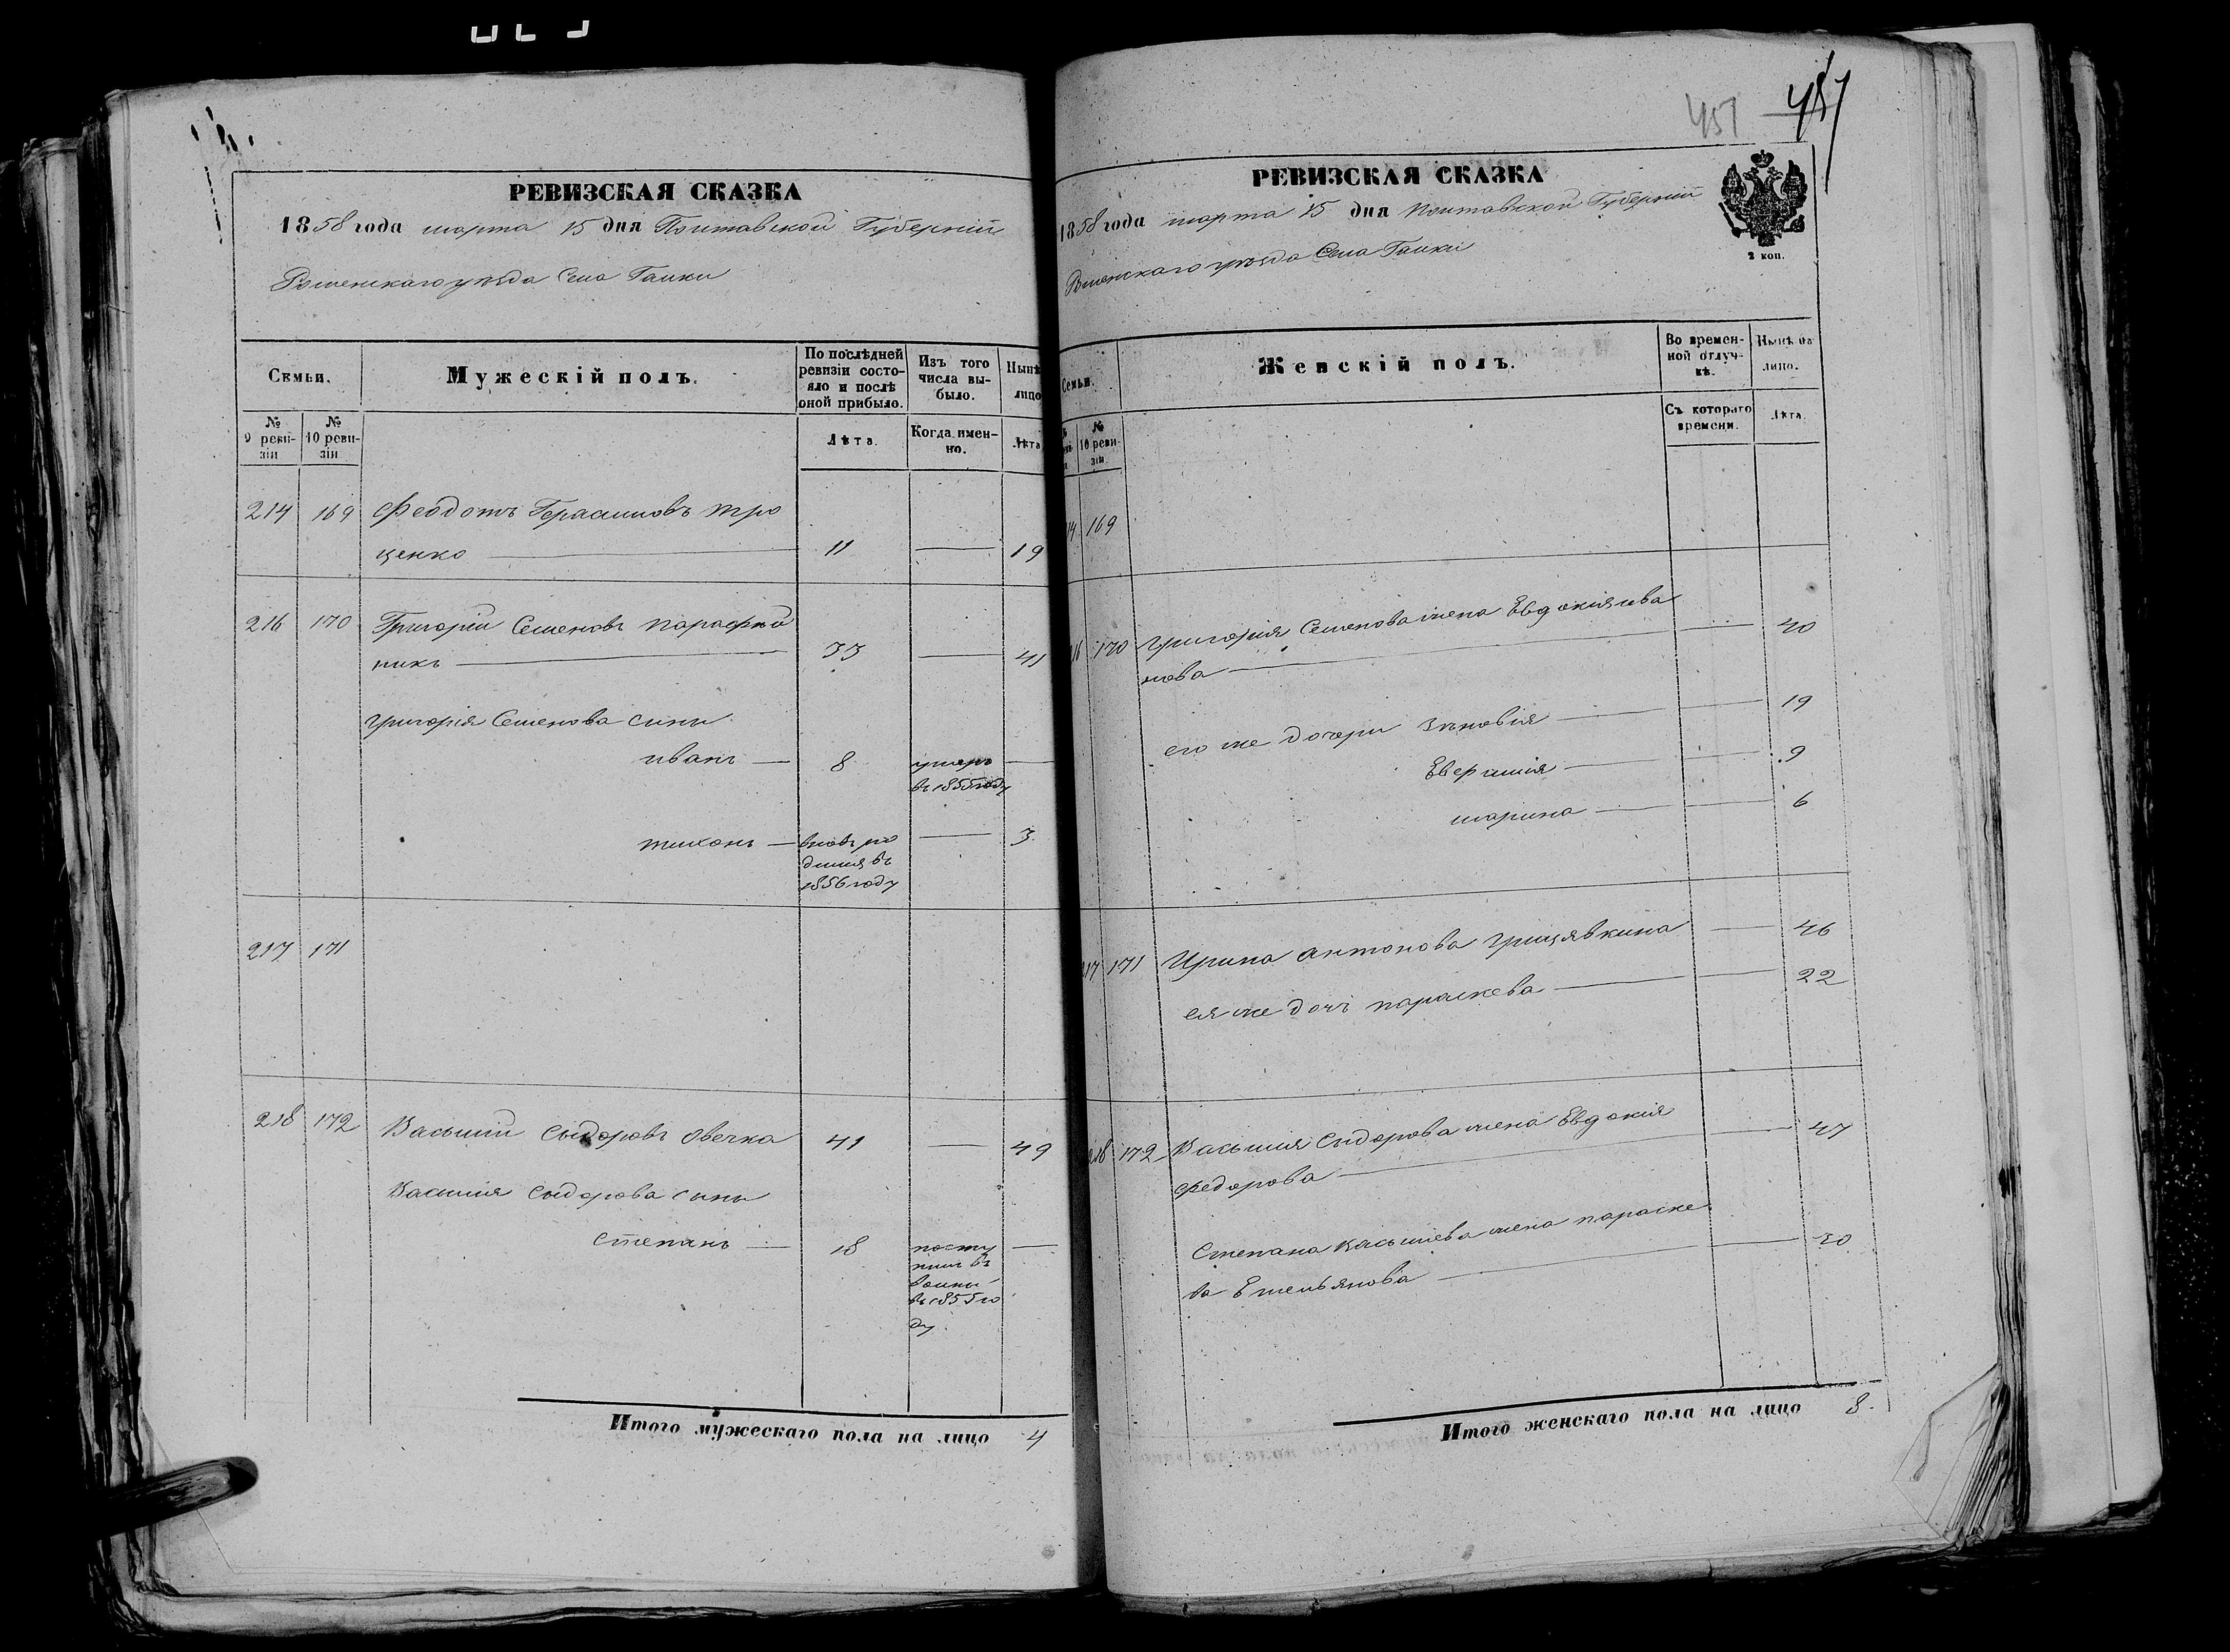 РЕВИЗСКАЯ СКАЗКА
1858 года марта 15 дня Полтавской Губерніи
Роменскаго уѣзда Села Галки
Семьи.
Мужескій полъ.
По послѣдней ревизіи состояло и послѣ оной прибыло.
Изъ того числа выбыло.
Нынѣ
лицо
№ 9 ревизіи
№ 10 ревизіи
Лѣта.
Когда именно.
Лѣта
214 169 Феодотъ Герасимовъ Тро
ценко 11 19
216 170 Григорій Семеновъ Парафѣй
никъ 33 41
Григорія Семенова сыны
иванъ 8 умеръ
въ 1855 году
тихонъ вновь ро 3
дился въ
1856 году
217 171
218 172 Василий Сыдоровъ Овечка 41 49
Василия Сыдорова сынъ
Степанъ 18 посту
пил въ
воины
въ 1855 го
ду.
Итого мужескаго пола на лицо 4
457 457
РЕВИЗСКАЯ СКАЗКА
1858 года марта 15 дня Полтавской Губерніи
Роменскаго уѣзда Села Галки
2 коп.
Семьи.
Женскій полъ.
Во временной отлучкѣ.
Нынѣ на лицо.
№ 10 ревизіи
Съ котораго времени.
Лѣта.
14 169
16 170 Григорія Семенова жена Евдокія ива
нова 40
его же дочери Зѣновія 19
Евфимія 9
марина 6
17 171 Ирина антонова Грицявкина 46
ея же дочь параскева 22
218 172 Василия Сыдорова жена Евдокія
федорова 47
Степана Васильева жена параске
ва Емельянова 20
Итого женскаго пола на лицо 8.